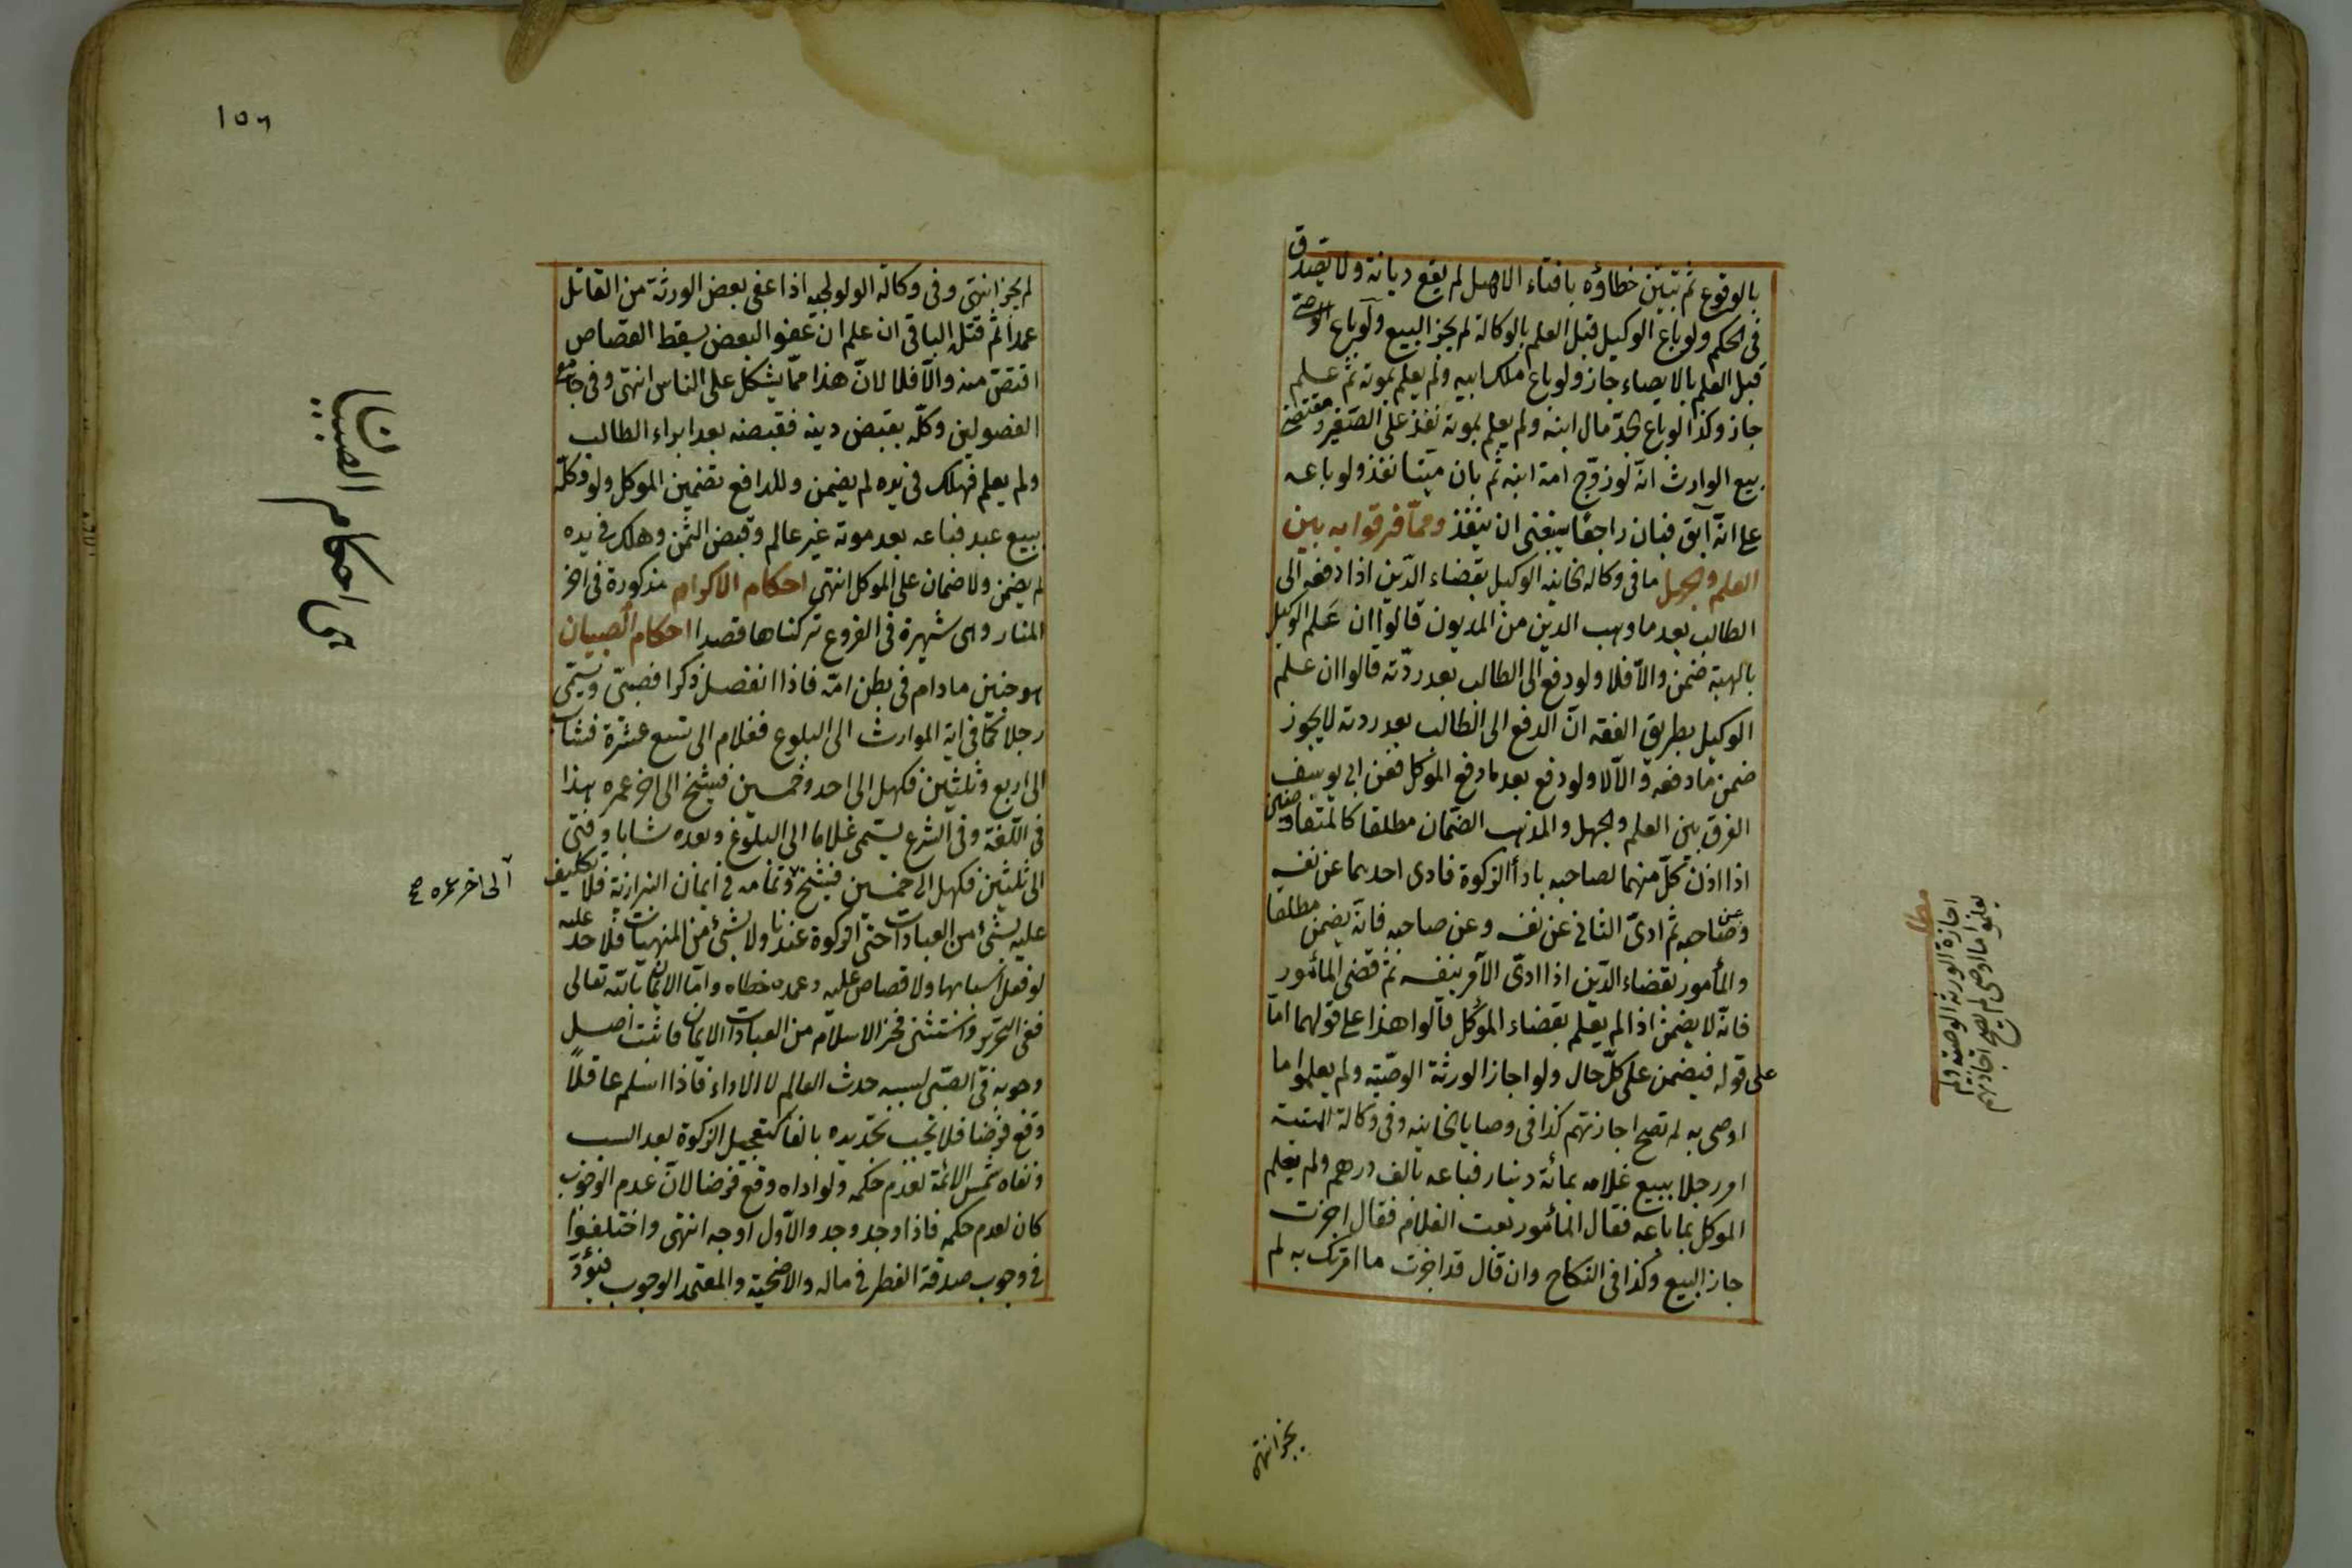 بالوقوع ثم تبين خطاؤه بافتاء الاهل لم يقع ديانة ولا يصدق
فى الحكم ولو باع الوكيل قبل العلم بالوكالة لم يجز البيع ولو باع الوصى
قبل العلم بالايصاء جاز ولو باع ملك ابيه ولم يعلم بموته ثم علم
جاز وكذا لو باع الجد مال ابنه ولم يعلم بموته نفذ على الصغير ومقتضى
بيع الوارث انه لو زوج امة ابنه ثم بان ميتا نفذ ولو باعه
على انه آبق فبان راجعا ينبغى ان ينفذ ومما فرقوا به بين
العلم والجهل ما فى وكالة الخانيه الوكيل بقضاء الدين اذا دفعه الى
الطالب بعد ما وهب الدين من المديون قالوا ان علم الوكيل
بالهبة ضمن والا فلا ولو دفع الى الطالب بعد ردته قالوا ان علم
الوكيل بطريق الفقه ان الدفع الى الطالب بعد ردته لا يجوز
ضمن ما دفعه والا لا ولو دفع بعد ما دفع الموكل فعن ابى يوسف
الفرق بين العلم والجهل والمذهب الضمان مطلقا كالمتفاوضين
اذا اذن كل منهما لصاحبه باداء الزكوة فادى احدهما عن نفسه
وعن صاحبه ثم ادى الثانى عن نفسه وعن صاحبه فانه يضمن مطلقا
والمأمور بقضاء الدين اذا ادى الآمر بنفسه ثم قضى المأمور
فانه لا يضمن اذا لم يعلم بقضاء الموكل قالوا هذا على قولهما اما
على قوله فيضمن على كل حال ولو اجاز الورثة الوصية ولم يعلموا ما
اوصى به لم تصح اجازتهم كذا فى وصايا الخانيه وفى وكالة المنية
امر رجلا ببيع غلامه بمائة دينار فباعه بالف درهم ولم يعلم
الموكل بما باعه فقال المأمور بعت الغلام فقال اجزت
جاز البيع وكذا فى النكاح وان قال قد اجزت ما امرتك به لم
مطلب
اجازة الورثة الوصية ولم
يعلموا ما اوصى لم تصح اجازتهم
يجز انتهى
١٥٦
لم يجز انتهى وفى وكالة الولولجيه اذا عفى بعض الورثة من القاتل
عمدا ثم قتله الباقى ان علم ان عفو البعض يسقط القصاص
اقتص منه والا فلا لان هذا مما يشكل على الناس انتهى وفى جامع
الفصولين وكله بقبض دينه فقبضه بعد ابراء الطالب
ولم يعلم فهلك فى يده لم يضمن وللدافع تضمين الموكل ولو وكله
ببيع عبد فباعه بعد موته غير عالم وقبض الثمن وهلك فى يده
لم يضمن ولا ضمان على الموكل انتهى احكام الاكراه مذكورة فى اخر
المنار وهى شهيرة فى الفروع تركناها قصدا احكام الصبيان
هو جنين مادام فى بطن امه فاذا انفصل ذكرا فصبى ويسمى
رجلا كما فى اية المواريث الى البلوغ فغلام الى تسع عشرة فشاب
الى اربع وثلثين فكهل الى احد وخمسين فشيخ الى اخر عمره هذا
فى اللغة وفى الشرع يسمى غلاما الى البلوغ وبعده شابا وفتى
الى ثلثين فكهل الى خمسين فشيخ وتمامه فى ايمان البزازية فلا تكليف
عليه بشئ من العبادات حتى الزكوة عندنا ولا بشئ من المنهيات فلا حد عليه
لو فعل اسبابها ولا قصاص عليه وعمده خطاه واما الايمان بالله تعالى
ففى التحرير واستثنى فخر الاسلام من العبادات الايمان فاثبت اصل
وجوبه فى الصبى لسببه حدث العالم لا الاداء فاذا اسلم عاقلاً
وقع فرضا فلا تجب تجديده بالغا كتعجيل الزكوة بعد السبب
ونفاه شمس الائمة لعدم حكمه ولو اداه وقع فرضا لان عدم الوجوب
كان لعدم حكمه فاذا وجد وجد والاول اوجه انتهى واختلفوا
فى وجوب صدقة الفطر فى ماله والاضحية والمعتمد الوجوب فيؤدى
احكام الصبيان
الى اخر عمره صح